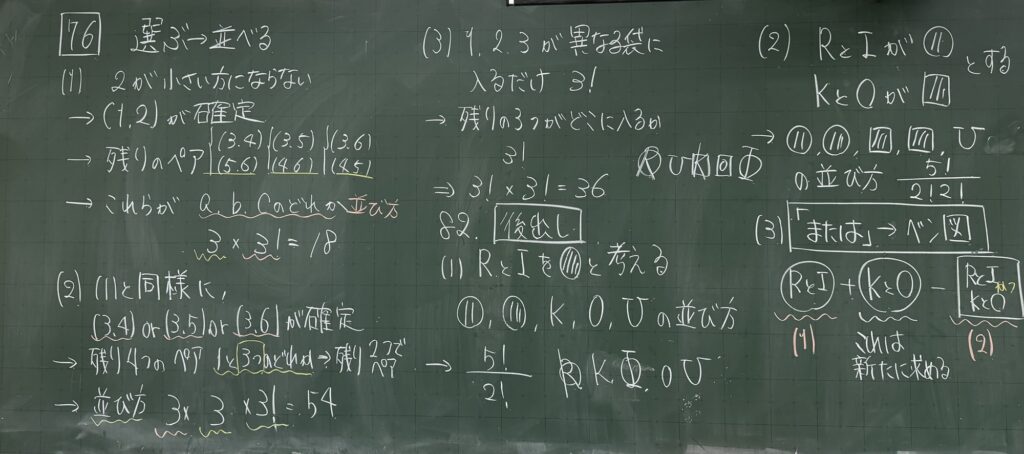 76 選ぶ→並べる
(1) 2が小さい方にならない
→(1,2)が確定
→ 残りのペア (3.4) (3.5) (3.6)
(5.6) (4.6) (4.5)
→ これらが a.b.cのどれか並び方
3 × 3! = 18
(2) (1)と同様に,
(3.4) or (3.5) or (3.6) が確定
→ 残り4つのペア 1と3つのどれか → 残り2つでペア
→ 並び方 3 × 3 × 3! = 54
(3) 1.2.3が異なる袋に
入るだけ 3!
→ 残りの3つがどこに入るか
3!
⇒ 3! × 3! = 36
82. 後出し
(1) RとIを〇と考える
〇, 〇, K, O, U の並び方
→ 5!
2!
R K I O U
R U K O I
(2) RとIが〇
KとOが□ とする
→ 〇, 〇, □, □, U
の並び方 5!
2!2!
(3) 「または」→ベン図
RとI + KとO - RとIかつ
KとO
(1) これは
新たに求める
(2)